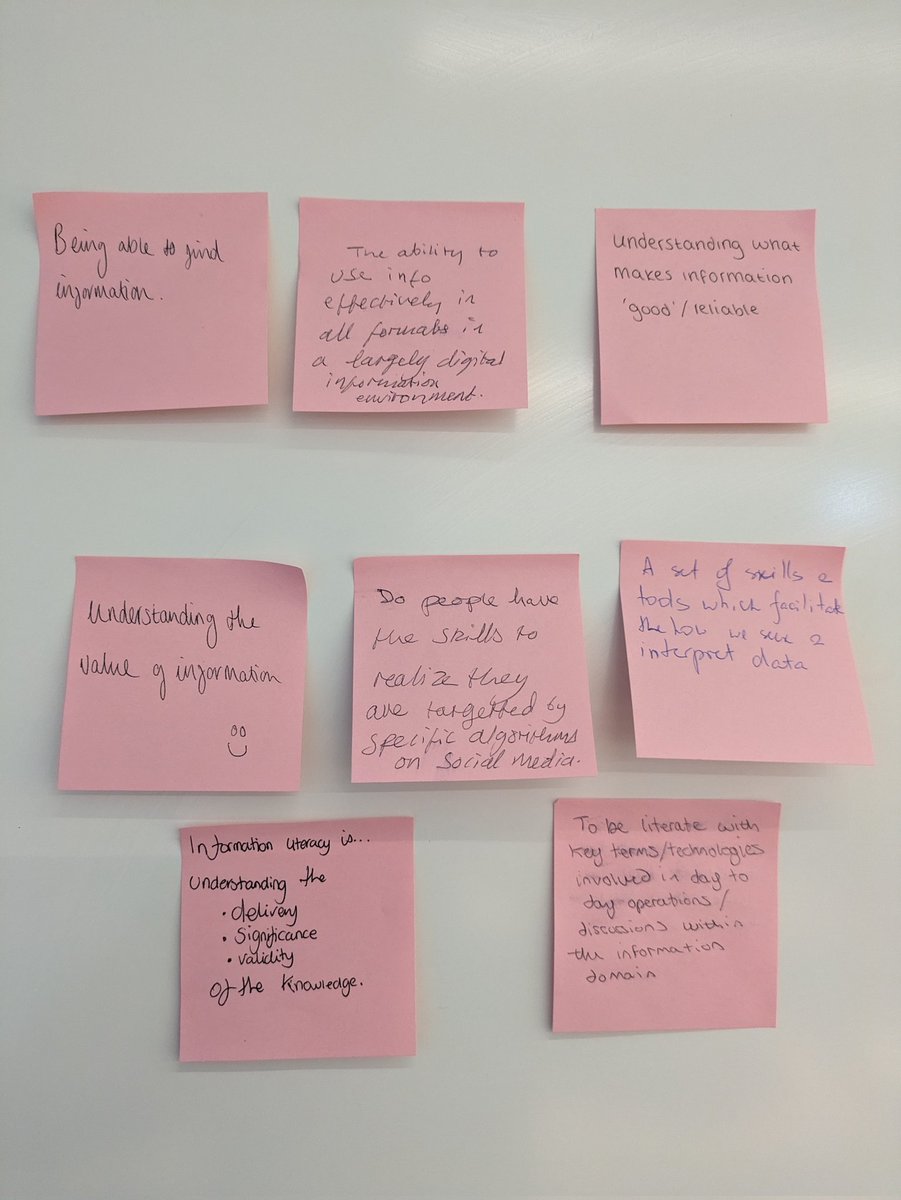 Being able to find
information.
The ability to
use info
effectively in
all formats in
a largely digital
information
environment.
understanding what
makes information
'good'/reliable
Understanding the
value of information
Do people have
the skills to
realize they
are targetted by
specific algorithms
on Social Media.
A set of skills &
tools which facilitate
the how we seek &
interpret data
Information literacy is...
Understanding the
• delivery
• Significance
• validity
of the knowledge.
To be literate with
key terms/technologies
involved in day to
day operations/
discussions within
the information
domain